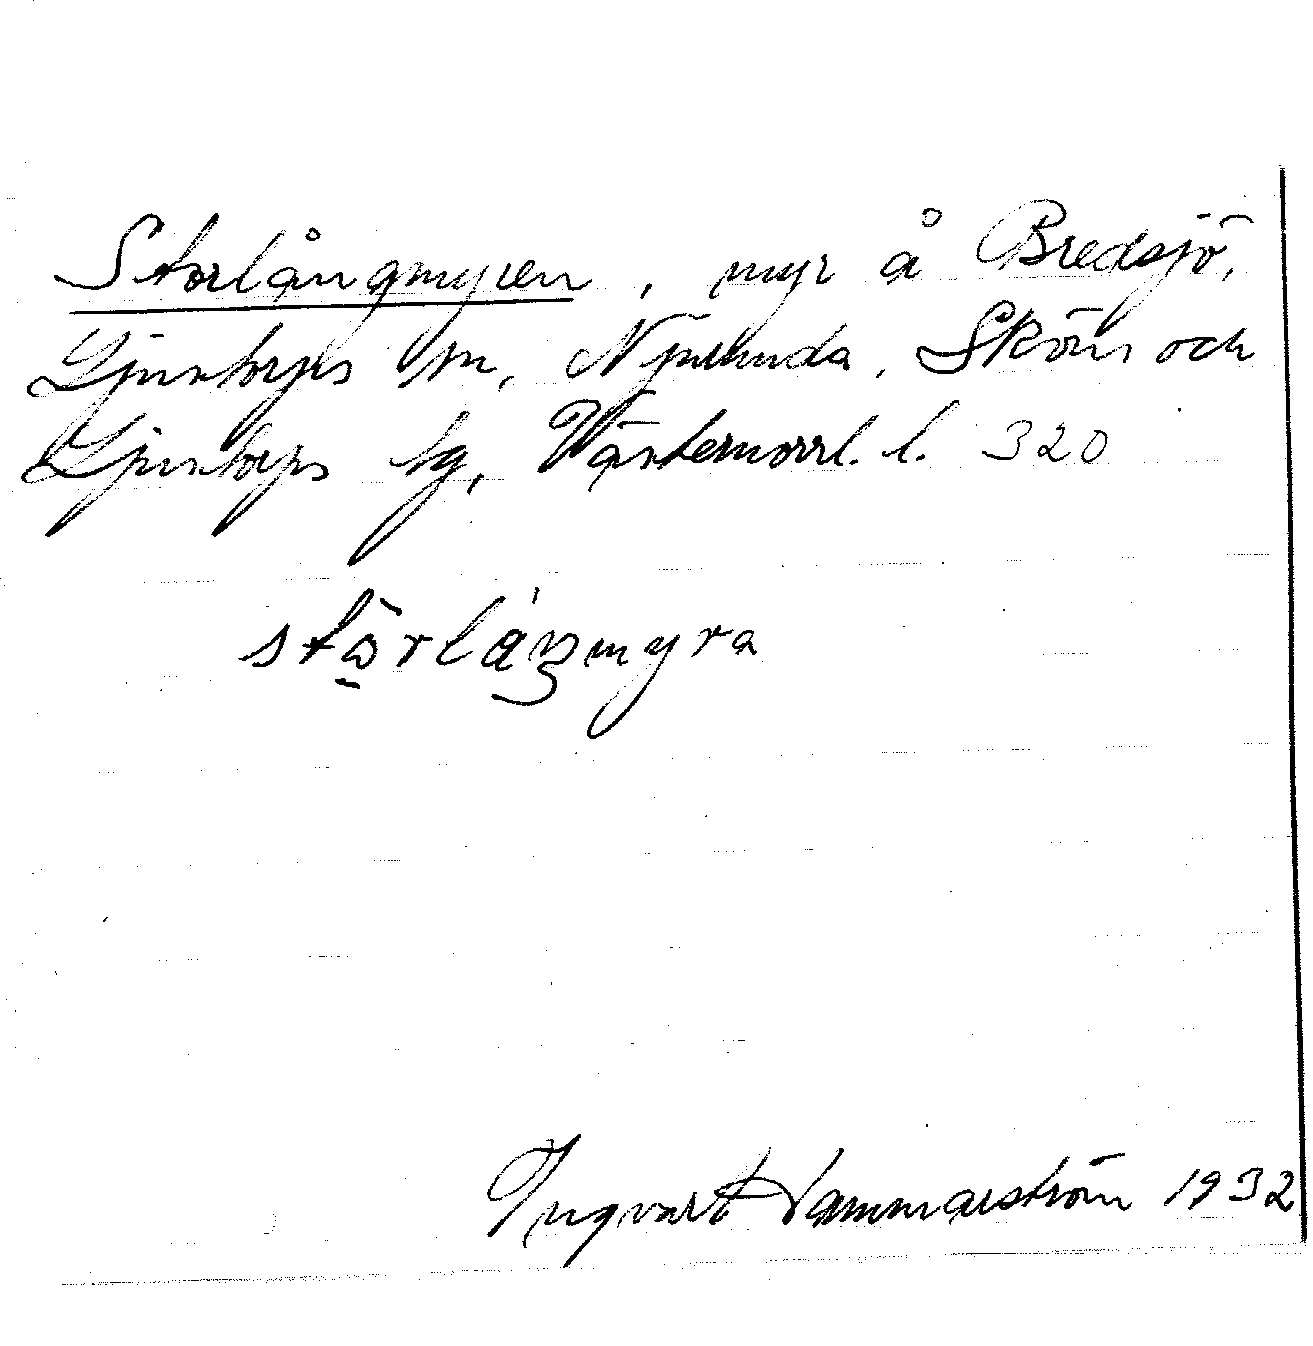 Storlångmyren, myr å Bredsjö,
Ljustorps sn, Njurunda, Sköns och
Ljustorps tg, Västernorrl. l. 320
stōrlåŋmyra
Ingvart Hammarström 1932